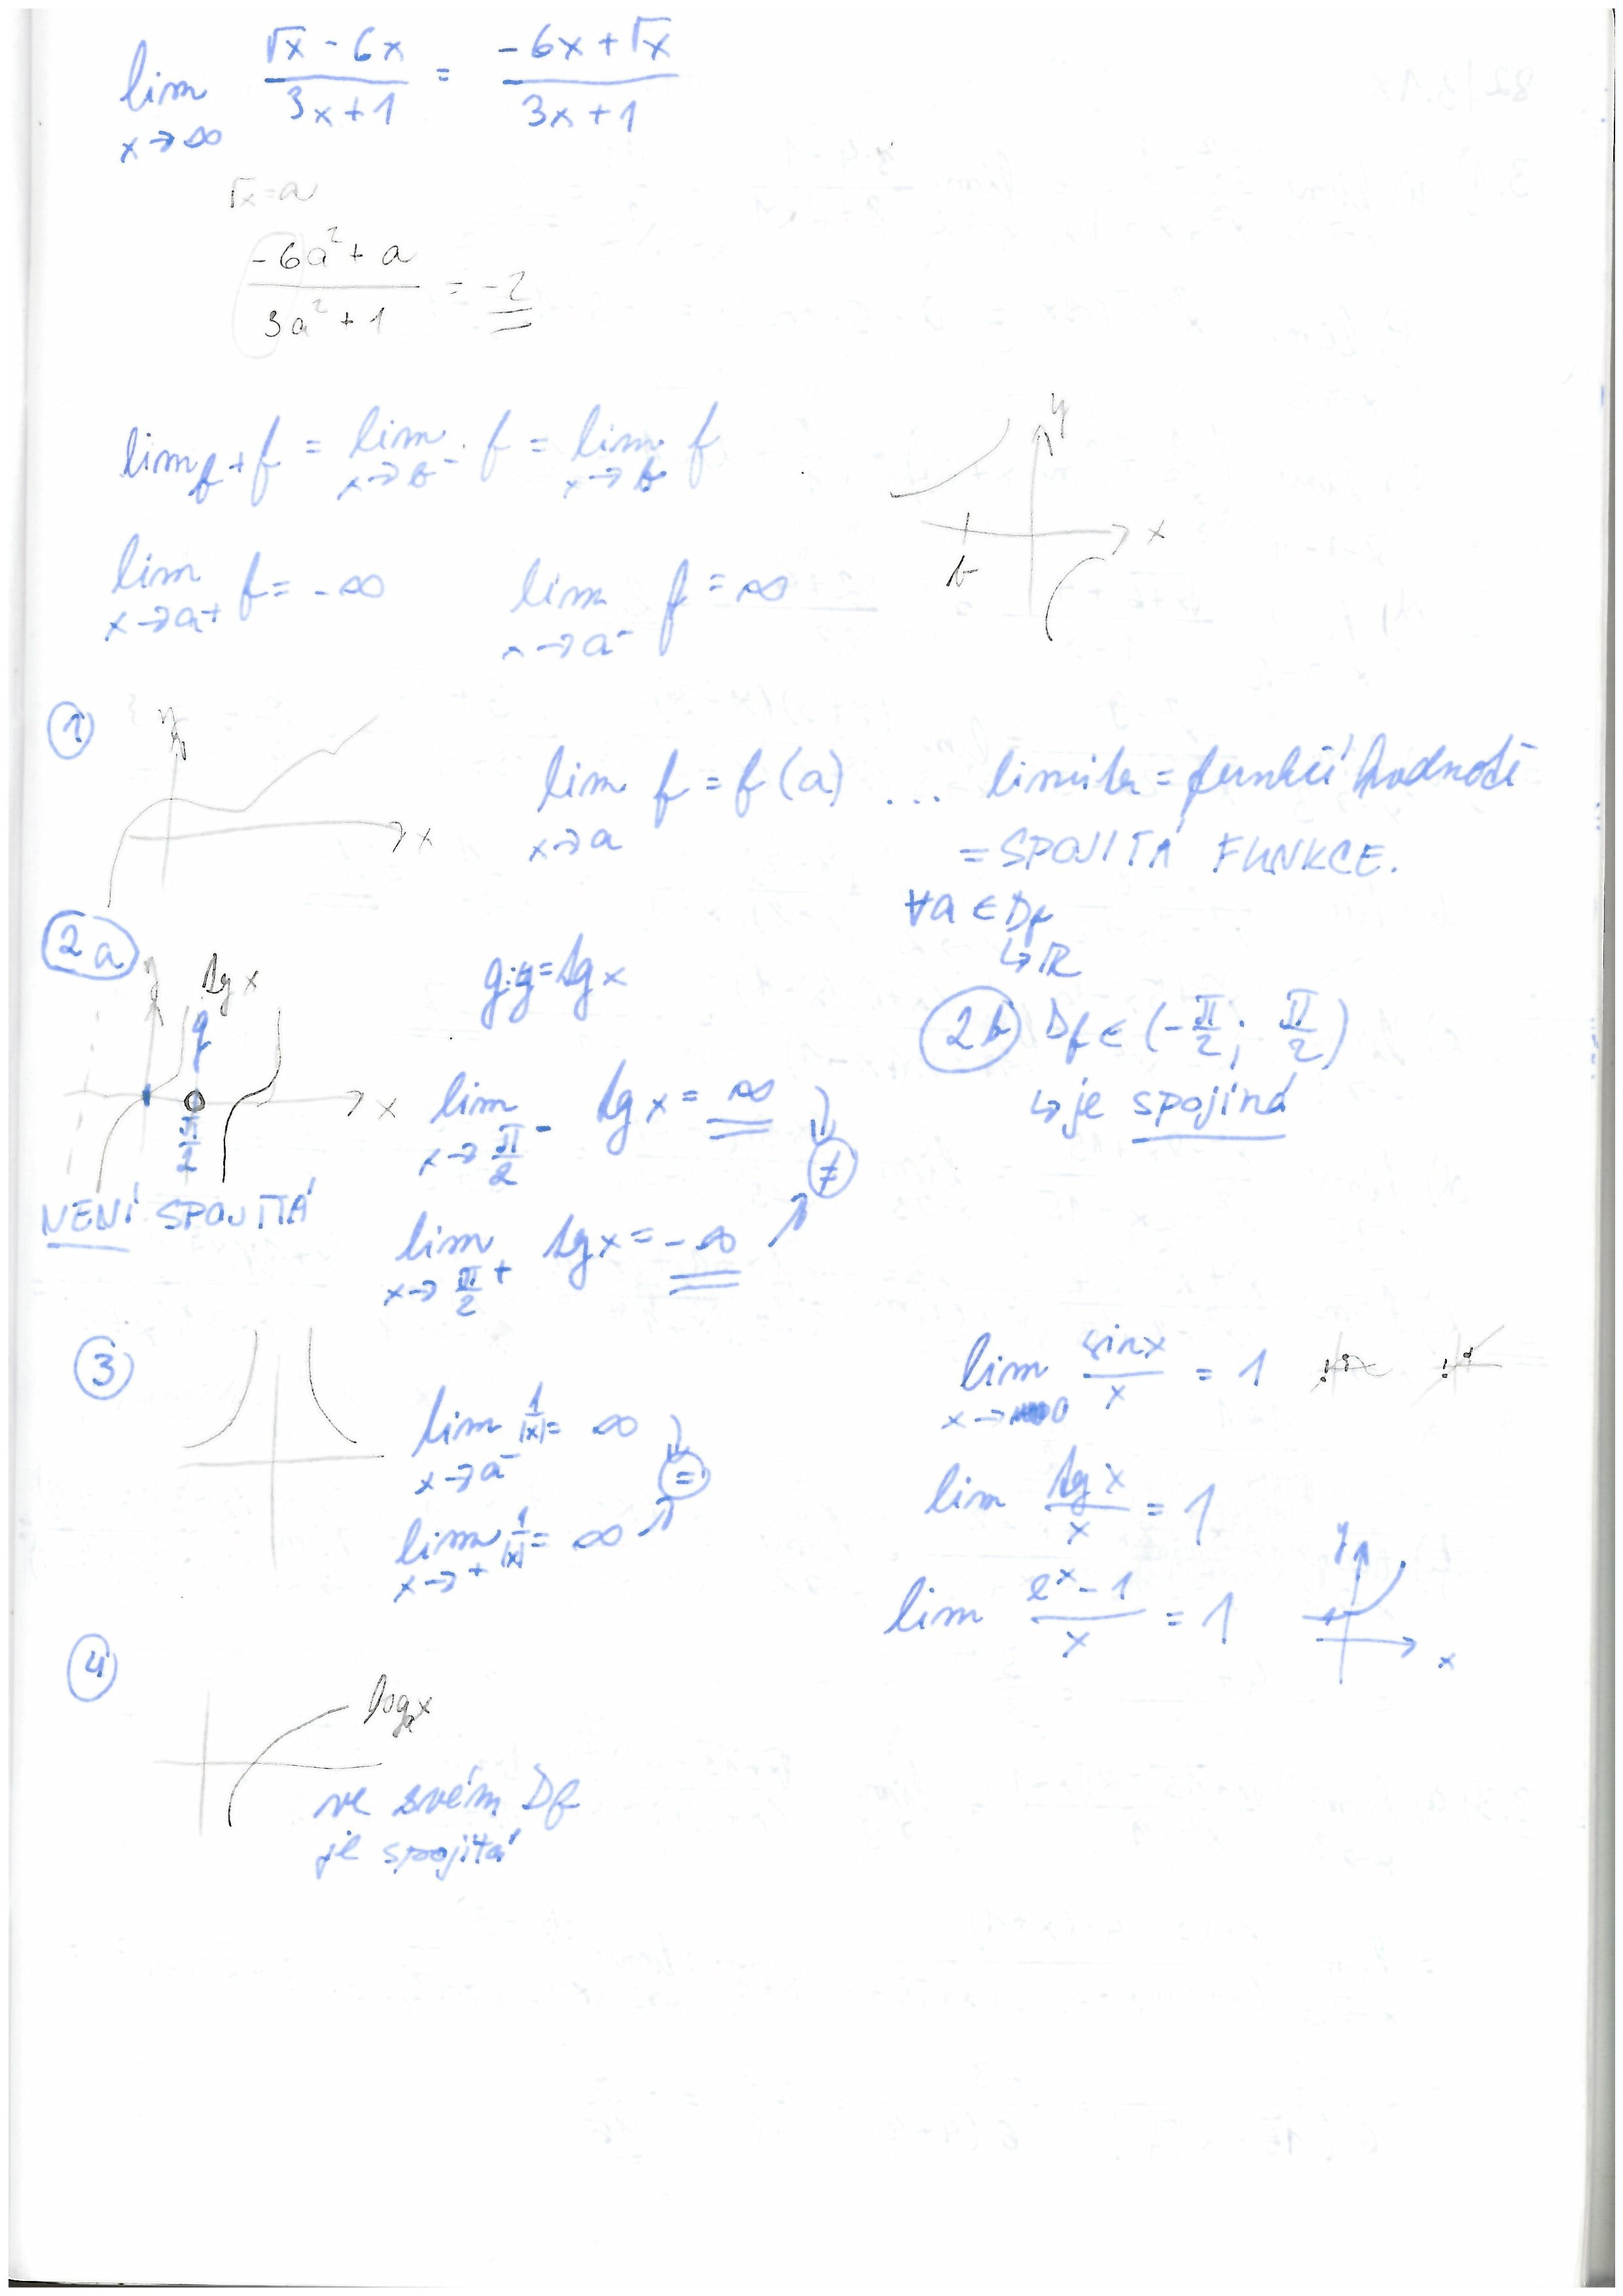 lim x→∞ (√x - 6x)/(3x+1) = (-6x+√x)/(3x+1)
√x = a
(-6a² + a)/(3a² + 1) = -2
lim b+ f = lim x→b- f = lim x→b f
y
x
b
lim x→a+ f = -∞
lim x→a- f = ∞
1
y
x
lim x→a f = f(a) ... limita = funkčí hodnotě
= SPOJITÁ FUNKCE.
∀a ∈ Df
↳ ℝ
2a
y
tg x
g
x
π/2
g: y = tg x
lim x→π/2- tg x = ∞
≠
lim x→π/2+ tg x = -∞
NENÍ SPOJITÁ
2b Df ∈ (-π/2; π/2)
↳ je spojitá
3
lim x→a- 1/|x| = ∞
=
lim x→+ 1/|x| = ∞
lim x→0 sinx/x = 1
lim tg x/x = 1
lim (e^x - 1)/x = 1
y
x
4
logₐx
ve svém Df
je spojitá